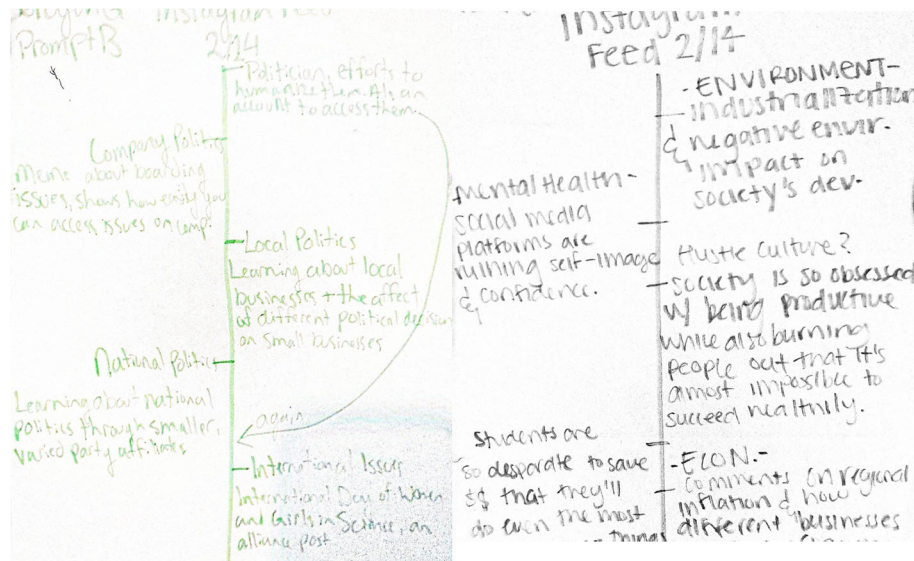 Instagram Feed
Prompt B 2/14
Politician, efforts to
humanize them. Also an
account to access them.
Company Politics
Meme about boarding
issues, shows how easily you
can access issues on comp.
Local Politics
Learning about local
businesses + the affect
of different political decision
on small businesses
National Politics
Learning about national
politics through smaller,
varied party affiliates
again
International Issues
International Day of Women
and Girls in Science, an
alliance post
Instagram
Feed 2/14
-ENVIRONMENT-
industrialization
& negative envir.
impact on
society's dev.
Mental Health-
social media
platforms are
ruining self-image
& confidence.
Hustle Culture?
society is so obsessed
w/ being productive
while also burning
people out that it's
almost impossible to
succeed healthily.
Students are
so desparate to save
$$ that they'll
do even the most
things
-ECON.-
comments on regional
inflation & how
different businesses